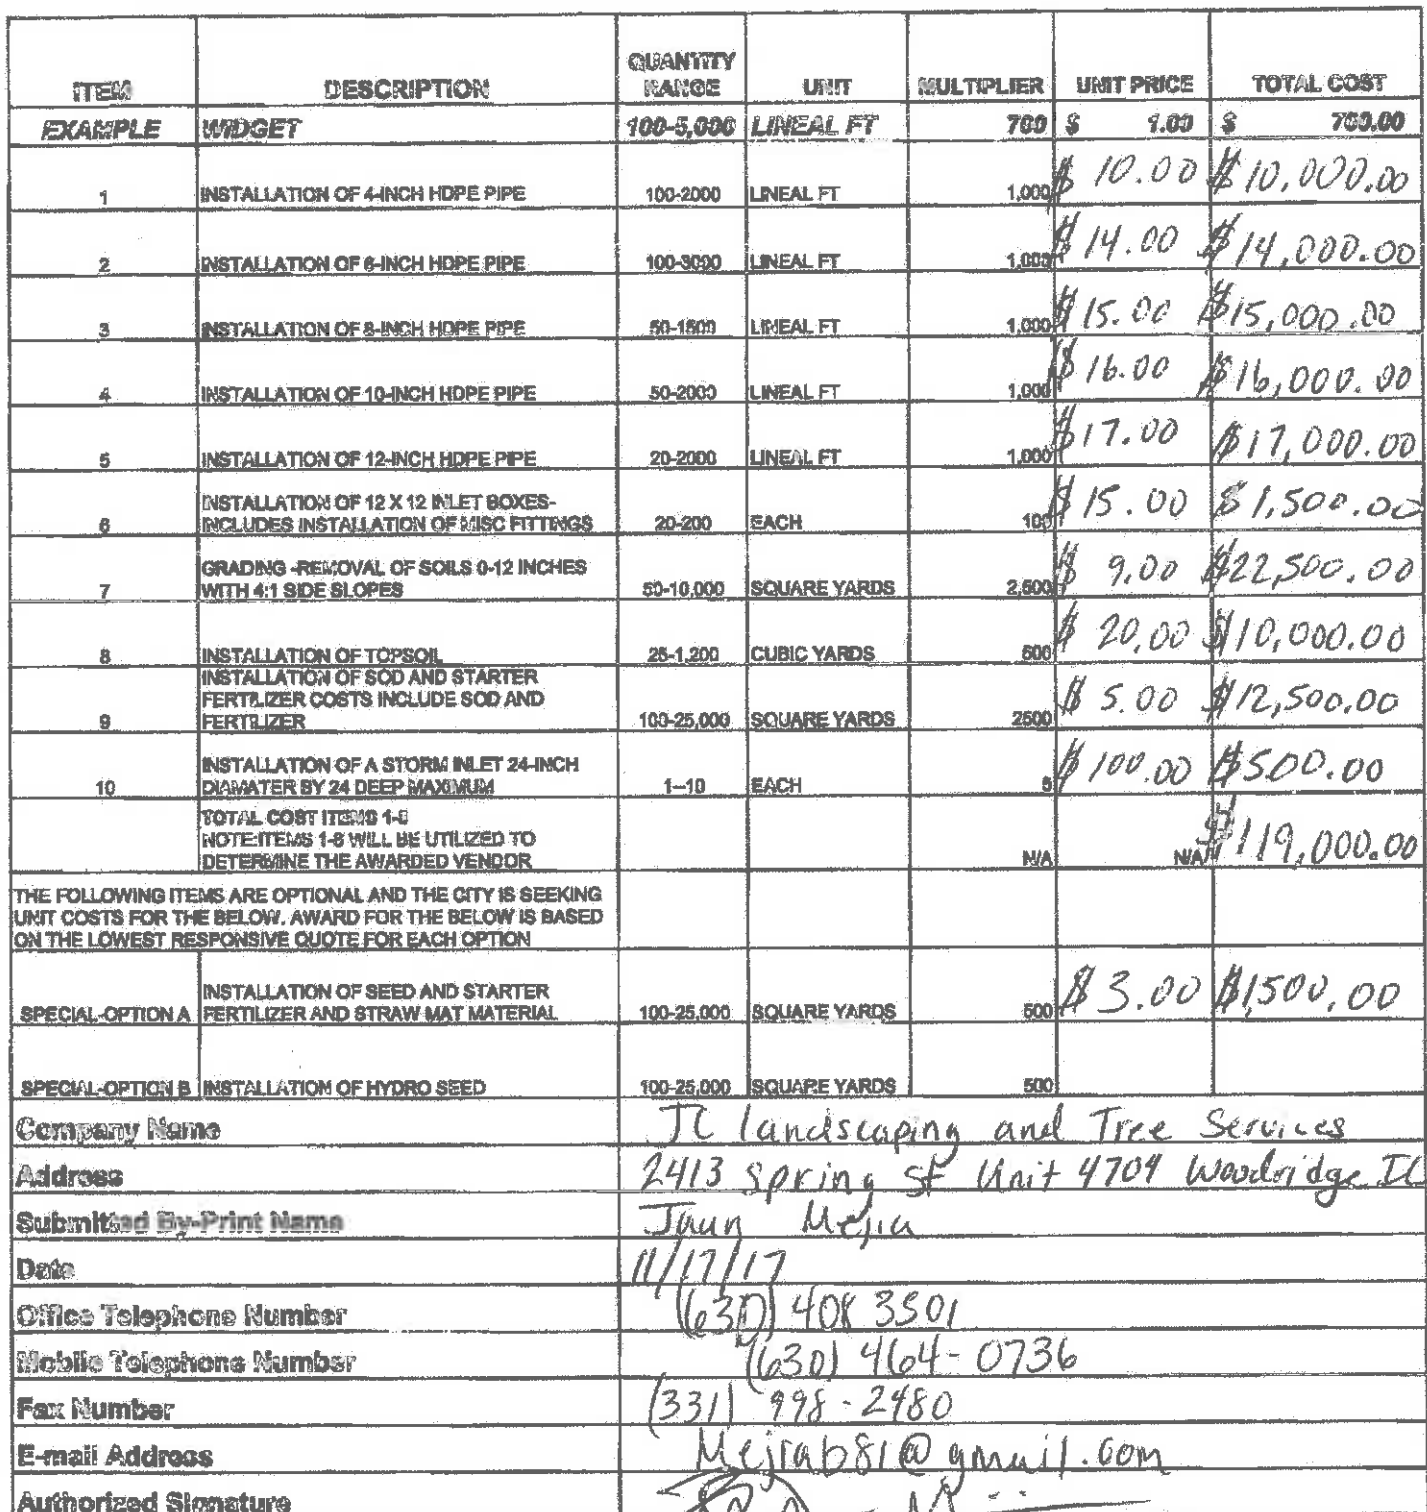 ITEM DESCRIPTION QUANTITY RANGE UNIT MULTIPLIER UNIT PRICE TOTAL COST
EXAMPLE WIDGET 100-5,000 LINEAL FT 700 $ 1.00 $ 700.00
1 INSTALLATION OF 4-INCH HDPE PIPE 100-2000 LINEAL FT 1,000 $ 10.00 $10,000.00
2 INSTALLATION OF 6-INCH HDPE PIPE 100-3000 LINEAL FT 1,000 $14.00 $14,000.00
3 INSTALLATION OF 8-INCH HDPE PIPE 50-1500 LINEAL FT 1,000 $15.00 $15,000.00
4 INSTALLATION OF 10-INCH HDPE PIPE 50-2000 LINEAL FT 1,000 $16.00 $16,000.00
5 INSTALLATION OF 12-INCH HDPE PIPE 20-2000 LINEAL FT 1,000 $17.00 $17,000.00
INSTALLATION OF 12 X 12 INLET BOXES-
6 INCLUDES INSTALLATION OF MISC FITTINGS 20-200 EACH 100 $15.00 $1,500.00
GRADING -REMOVAL OF SOILS 0-12 INCHES
7 WITH 4:1 SIDE SLOPES 50-10,000 SQUARE YARDS 2,500 $ 9.00 $22,500.00
8 INSTALLATION OF TOPSOIL 25-1,200 CUBIC YARDS 500 $ 20.00 $10,000.00
INSTALLATION OF SOD AND STARTER
FERTILIZER COSTS INCLUDE SOD AND
9 FERTILIZER 100-25,000 SQUARE YARDS 2500 $ 5.00 $12,500.00
INSTALLATION OF A STORM INLET 24-INCH
10 DIAMATER BY 24 DEEP MAXIMUM 1--10 EACH 5 $100.00 $500.00
TOTAL COST ITEMS
NOTE:ITEMS WILL BE UTILIZED TO
DETERMINE THE AWARDED VENDOR N/A N/A $119,000.00
THE FOLLOWING ITEMS ARE OPTIONAL AND THE CITY IS SEEKING
UNIT COSTS FOR THE BELOW. AWARD FOR THE BELOW IS BASED
ON THE LOWEST RESPONSIVE QUOTE FOR EACH OPTION
INSTALLATION OF SEED AND STARTER
SPECIAL-OPTION A FERTILIZER AND STRAW MAT MATERIAL 100-25,000 SQUARE YARDS 500 $3.00 $1,500.00
SPECIAL-OPTION B INSTALLATION OF HYDRO SEED 100-25,000 SQUARE YARDS 500
Company Name JC landscaping and Tree Services
Address 2413 Spring St Unit 4704 Woodridge IL
Submitted By-Print Name Jaun Mejia
Date 11/17/17
Office Telephone Number (630) 408 3501
Mobile Telephone Number (630) 464-0736
Fax Number (331) 998-2480
E-mail Address Mejiab81@gmail.com
Authorized Signature